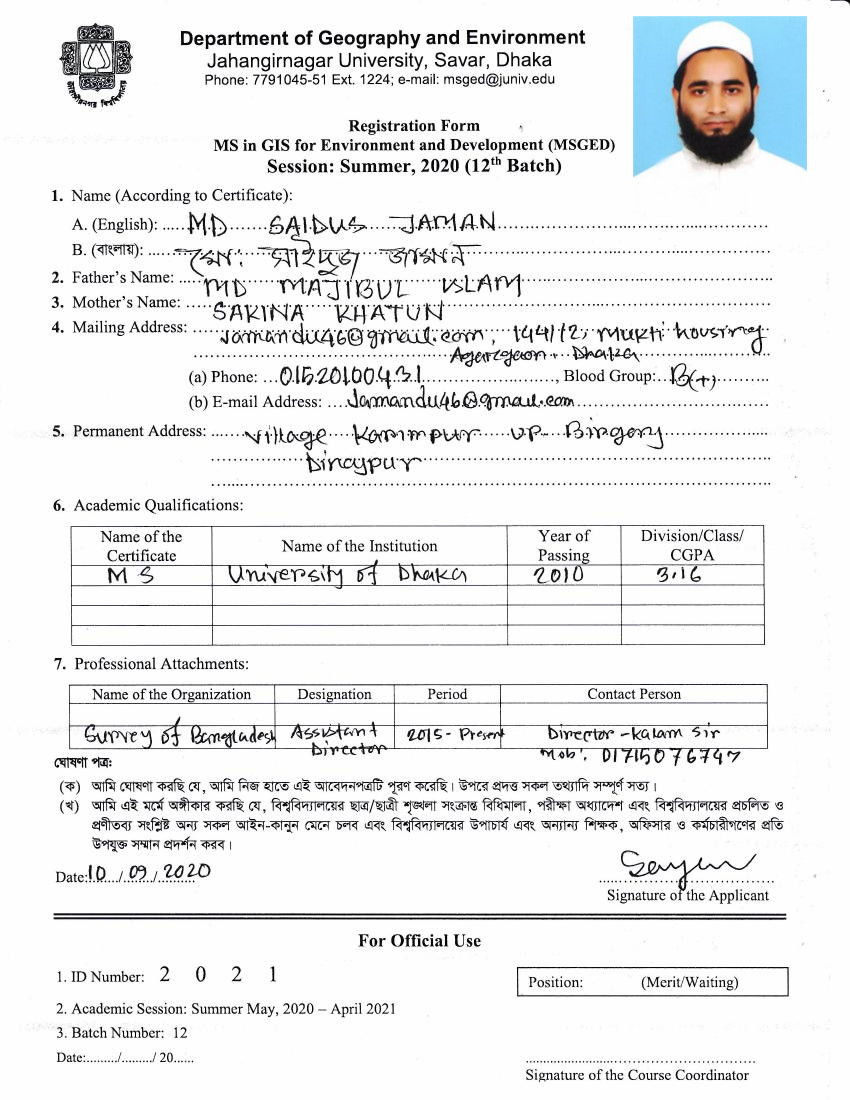 Department of Geography and Environment
Jahangirnagar University, Savar, Dhaka
Phone: 7791045-51 Ext. 1224; e-mail: msged@juniv.edu
Registration Form
MS in GIS for Environment and Development (MSGED)
Session: Summer, 2020 (12th Batch)
1. Name (According to Certificate):
A. (English): MD SAIDUS JAMAN
B. (বাংলায়): মোঃ সাইদুজ জামান
2. Father's Name: MD MAJIBUL ISLAM
3. Mother's Name: SAKINA KHATUN
4. Mailing Address: Jamandu46@gmail.com, 144/12, Mukti housing
Agargaon, Dhaka
(a) Phone: 01520100431, Blood Group: B(+)
(b) E-mail Address: Jamandu46@gmail.com
5. Permanent Address: Village Karimpur UP- Birgonj
Dinajpur
6. Academic Qualifications:
Name of the Certificate Name of the Institution Year of Passing Division/Class/ CGPA
MS University of Dhaka 2010 3.16
7. Professional Attachments:
Name of the Organization Designation Period Contact Person
Survey of Bangladesh Assistant Director 2015- Present Director -Kalam Sir
Mob: 01715076747
ঘোষণা পত্র:
(ক) আমি ঘোষণা করছি যে, আমি নিজ হাতে এই আবেদনপত্রটি পূরণ করেছি। উপরে প্রদত্ত সকল তথ্যাদি সম্পূর্ণ সত্য।
(খ) আমি এই মর্মে অঙ্গীকার করছি যে, বিশ্ববিদ্যালয়ের ছাত্র/ছাত্রী শৃঙ্খলা সংক্রান্ত বিধিমালা, পরীক্ষা অধ্যাদেশ এবং বিশ্ববিদ্যালয়ের প্রচলিত ও
প্রণীতব্য সংশ্লিষ্ট অন্য সকল আইন-কানুন মেনে চলব এবং বিশ্ববিদ্যালয়ের উপাচার্য এবং অন্যান্য শিক্ষক, অফিসার ও কর্মচারীগণের প্রতি
উপযুক্ত সম্মান প্রদর্শন করব।
Date: 10/09/2020
Signature of the Applicant
For Official Use
1. ID Number: 2 0 2 1
Position: (Merit/Waiting)
2. Academic Session: Summer May, 2020 – April 2021
3. Batch Number: 12
Date:........./........./ 20......
Signature of the Course Coordinator